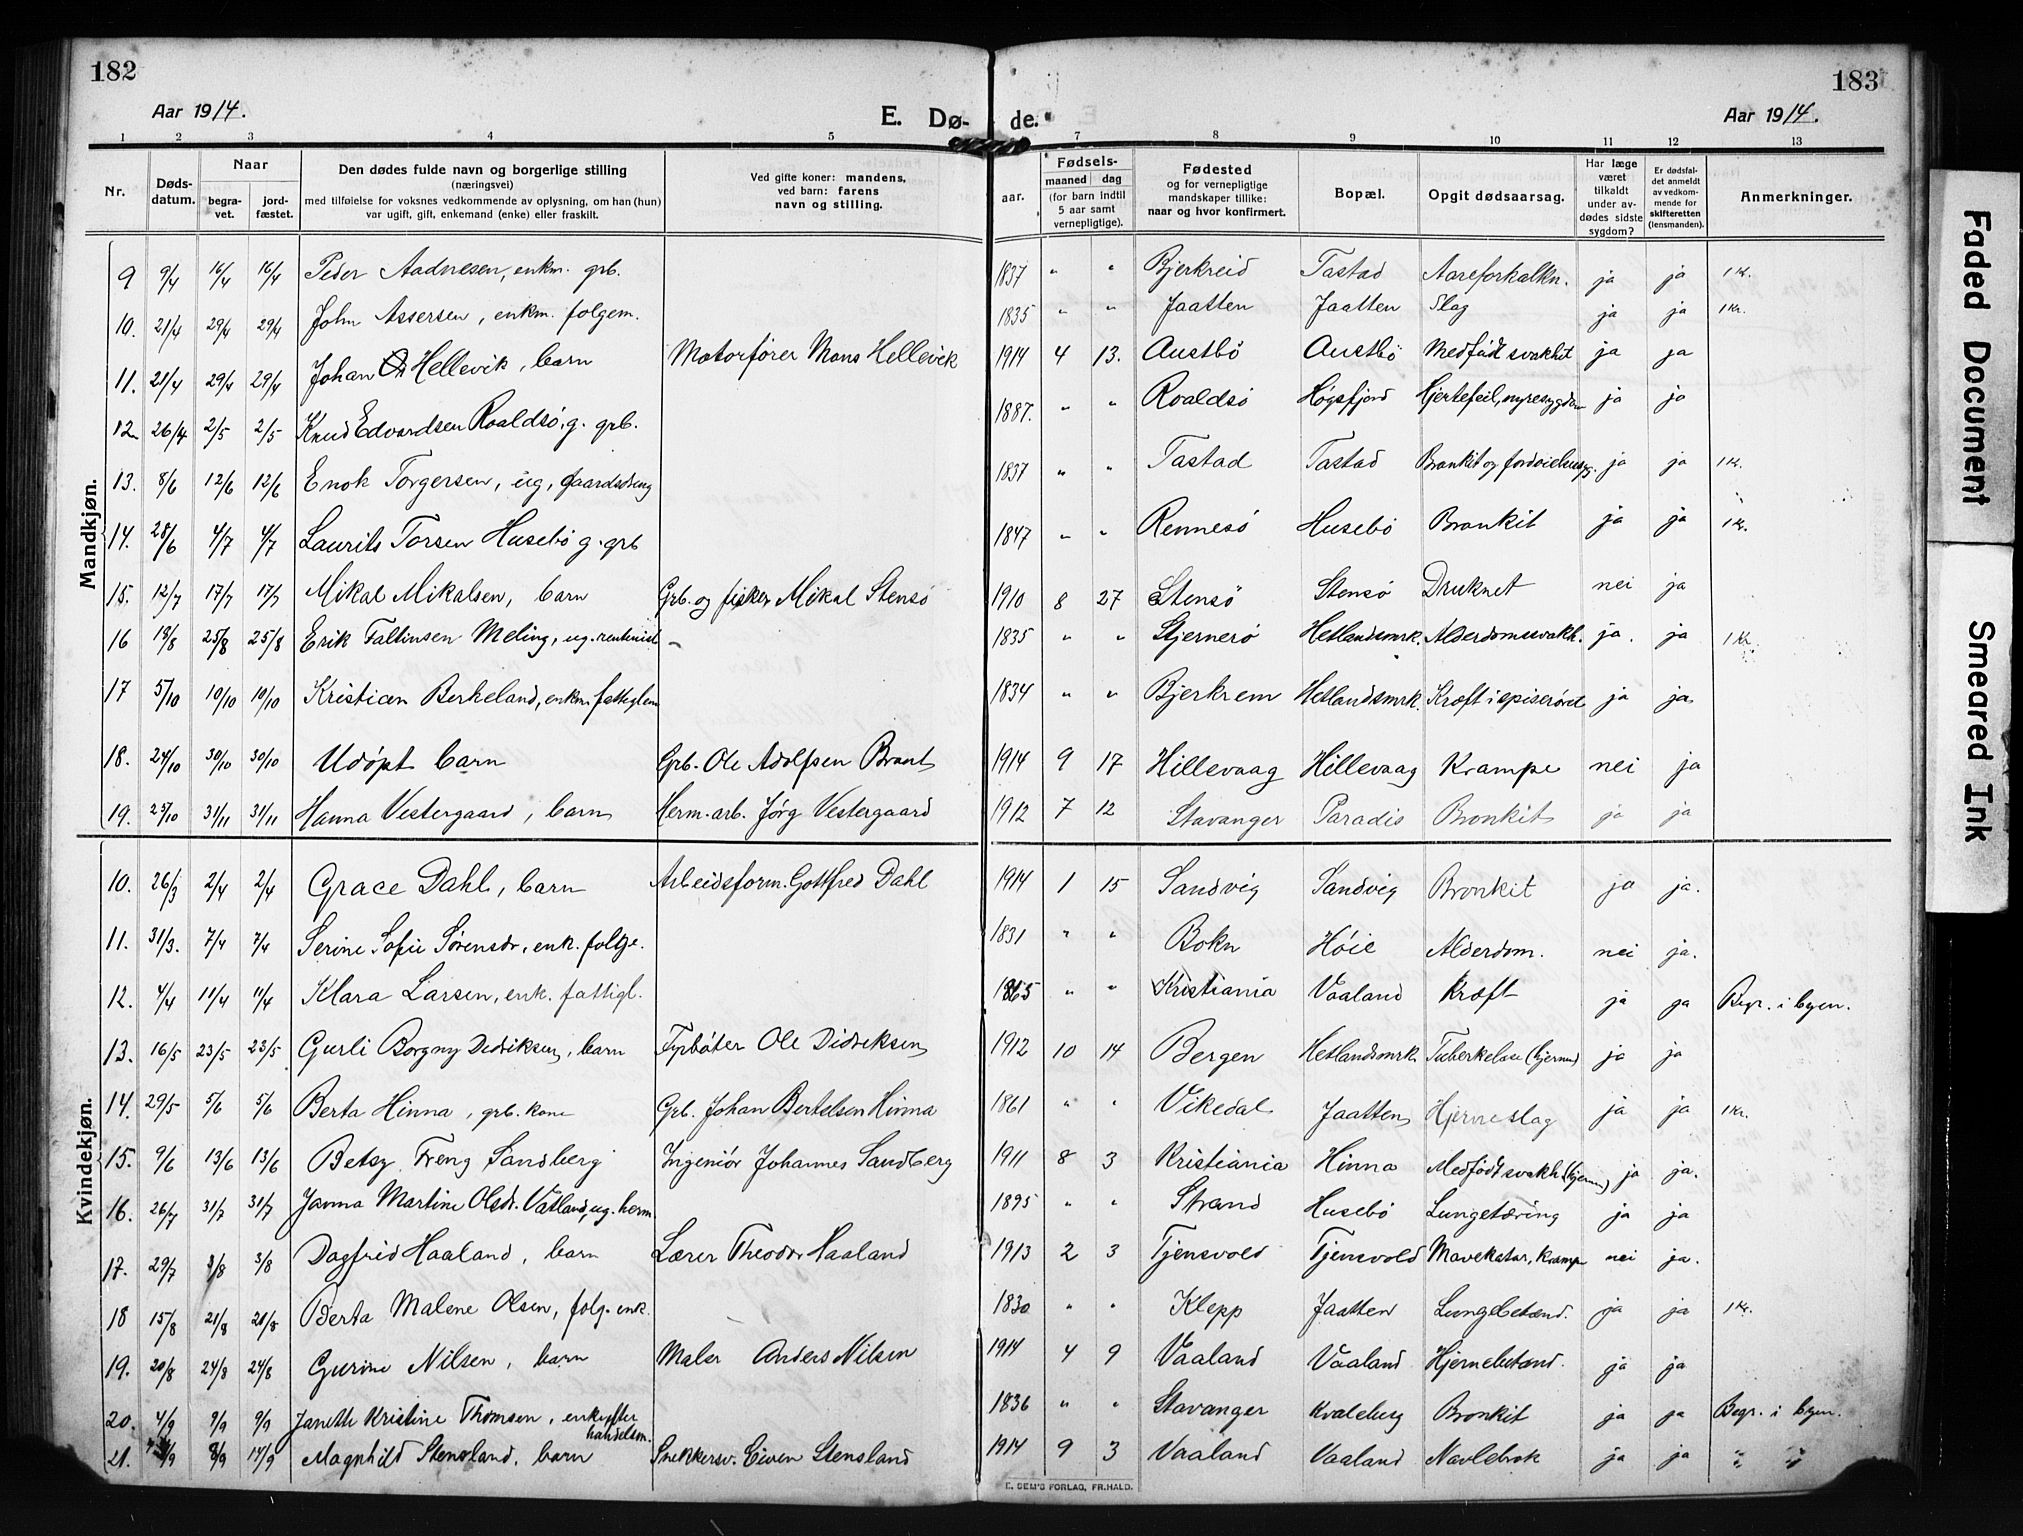 182
Aar 1914.
E. Dø-
de.
183
Aar 1914.
1 2 3 4 5 7 8 9 10 11 12 13
Nr.
Døds-
datum.
Naar
begra-
vet.
jord-
fæstet.
Den dødes fulde navn og borgerlige stilling
(næringsvei)
med tilføielse for voksnes vedkommende av oplysning, om han (hun)
var ugift, gift, enkemand (enke) eller fraskilt.
Ved gifte koner: mandens,
ved barn: farens
navn og stilling.
aar.
Fødsels-
maaned dag
(for barn indtil
5 aar samt
vernepligtige).
Fødested
og for vernepligtige
mandskaper tillike:
naar og hvor konfirmert.
Bopæl.
Opgit dødsaarsag.
Har læge
været
tilkaldt
under av-
dødes sidste
sygdom?
Er dødsfal-
det anmeldt
av vedkom-
mende for
skifteretten
(lensmanden).
Anmerkninger.
Mandkjøn.
9 9/4 16/4 16/4 Peder Aadnesen, enkm. grb. 1837 " " Bjerkreid Tastad Aareforkalkn. ja ja 1 Kr.
10. 21/4 29/4 29/4 John Assersen, enkm. folgem. 1835 " " Jaatten Jaatten Slag ja ja 1 Kr.
11. 21/4 29/4 29/4 Johan Hellevik, barn Motorfører Mons Hellevik 1914 4 13. Austbø Austbø Medfødt svakhet ja ja
12. 26/4 2/5 2/5 Knud Edvardsen Roaldsø, g. grb. 1887. " " Roaldsø Høgsfjord Hjertefeil, nyresygdom ja ja
13. 8/6 12/6 12/6 Enok Torgersen, ug, gaardsdreng 1837 " " Tastad Tastad Bronkit og fordøielsessyg. ja ja 1 Kr.
14. 28/6 4/7 4/7 Laurits Torsen Husebø g. grb 1847 " " Rennesø Husebø Bronkit ja ja 1 Kr.
15. 12/7 17/7 17/7 Mikal Mikalsen, barn Grb. og fisker Mikal Stensø 1910 8 27 Stensø Stensø Druknet nei ja
16 19/8 25/8 25/8 Erik Faltinsen Meling, ug. rentenist - 1835 " " Stjernerø Hetlandsmrk. Alderdomssvakh. ja. ja 1 Kr.
17 5/10 10/10 10/10 Kristian Berkeland, enkm. fattiglem 1834 " " Bjerkrem Hetlandsmrk. Kræft i spiserøret ja ja
18. 24/10 30/10 30/10 Udøpt barn Grb. Ole Adolfsen Braut 1914 9 17 Hillevaag Hillevaag Krampe nei ja
19. 25/10 31/11 31/11 Hanna Vestergaard, barn Herm. arb. Jørg Vestergaard 1912 7 12 Stavanger Paradis Bronkit ja ja
Kvindekjøn.
10. 26/3 2/4 2/4 Grace Dahl, barn Arbeidsform. Gottfred Dahl 1914 1 15 Sandvig Sandvig Bronkit ja ja.
11. 31/3. 7/4 7/4 Serine Sofie Sørensdr, enk. folge. 1831 " " Bokn Høie Alderdom. nei ja.
12. 4/4 11/4 11/4 Klara Larsen, enk. fattigl. 1865 " " Kristiania Vaaland Kræft ja ja Begr. i byen.
13. 16/5 23/5 23/5 Gurli Borgny Didriksen, barn Fyrbøter Ole Didreksen 1912 10 14 Bergen Hetlandsmrk Tuberkelose (hjernen) ja ja
14. 29/5 5/6 5/6 Berta Hinna, grb. kone Grb. Johan Bertelsen Hinna 1861 " " Vikedal Jaatten Hjerneslag ja ja 1 Kr.
15. 9/6 13/6 13/6 Betsy Treng Sandberg Ingeniør Johannes Sandberg 1911 8 3 Kristiania Hinna Medfødt svakh. (hjernen) ja ja.
16. 26/7 31/7 31/7 Janna Martine Olsdr. Våtland, ug. herm. 1895 " " Strand Husebø Lungetæring ja ja
17. 29/7 3/8 3/8 Dagfrid Haaland, barn Lærer Theodor Haaland 1913 2 3 Tjensvold Tjensvold Mavekatar, krampe nei ja.
18 15/8 21/8 21/8 Berta Malene Olsen, folg. enk. 1830 " " Klepp Jaatten Lungebetænd. ja ja 1 Kr.
19. 20/8 24/8 24/8 Gurine Nilsen, barn Maler Anders Nilsen 1914 4 9 Vaaland Vaaland Hjernebetænd. ja ja
20. 4/9 9/9 9/9 Janette Kristine Thomsen, enke efter handelsm. 1836 " " Stavanger Kvaleberg Bronkit ja ja Begr. i byen.
21. 9/9 Magnhild Stensland, barn Snekkersv. Eiven Stensland 1914 9 3 Vaaland Vaaland Navlebrok ja ja " "
E. SEM'S FORLAG, FR.HALD.
Faded Document
Smeared Ink